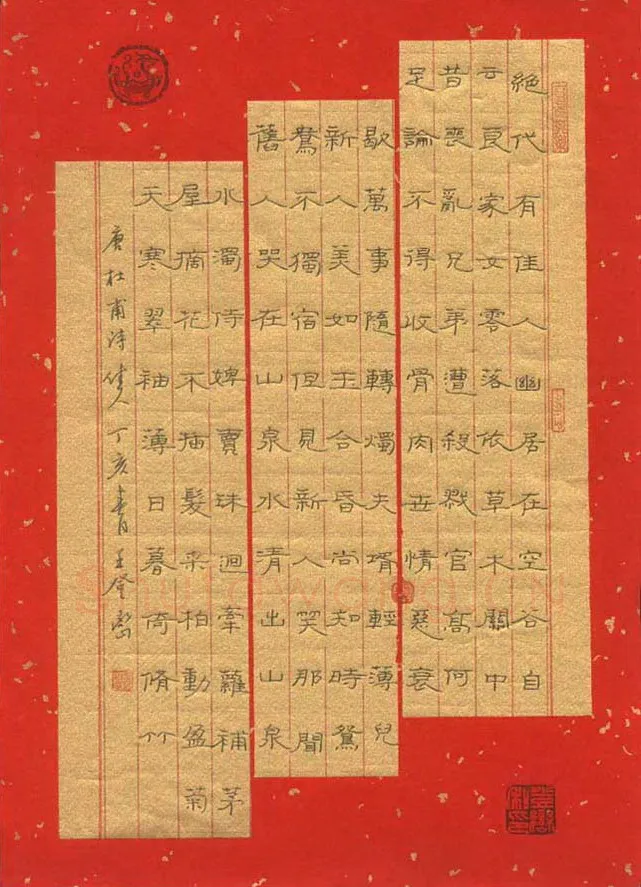 絕代有佳人幽居在空谷自
云良家女零落依草木關中
昔喪亂兄弟遭殺戮官高何
足論不得收骨肉世情惡衰
歇萬事隨轉燭夫壻輕薄兒
新人美如玉合昏尚知時鴛
鴦不獨宿但見新人笑那聞
舊人哭在山泉水清出山泉
水濁侍婢賣珠迴牽蘿補茅
屋摘花不插髮采柏動盈菊
天寒翠袖薄日暮倚脩竹
唐杜甫詩佳人丁亥書王登